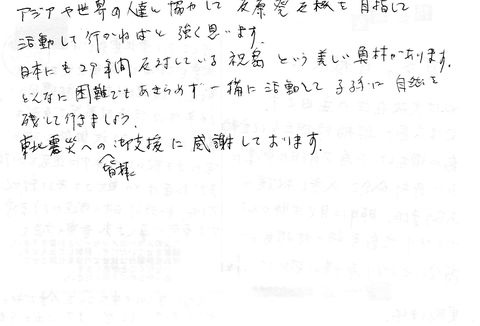 アジアや世界の人達と協力して反原発反核を目指して
活動して行かねばと強く思います。
日本にも29年間反対している祝島という美しい島があります。
どんなに困難でもあきらめず一緒に活動して子孫に自然を
残して行きましょう。
東北震災への御支援に感謝しております。
皆様